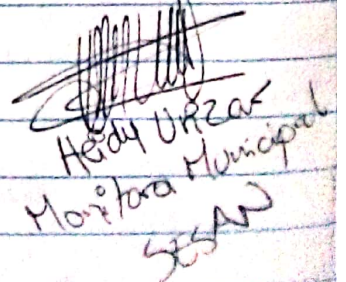 Heidy Urizar
Monitora Municipal
SESAN